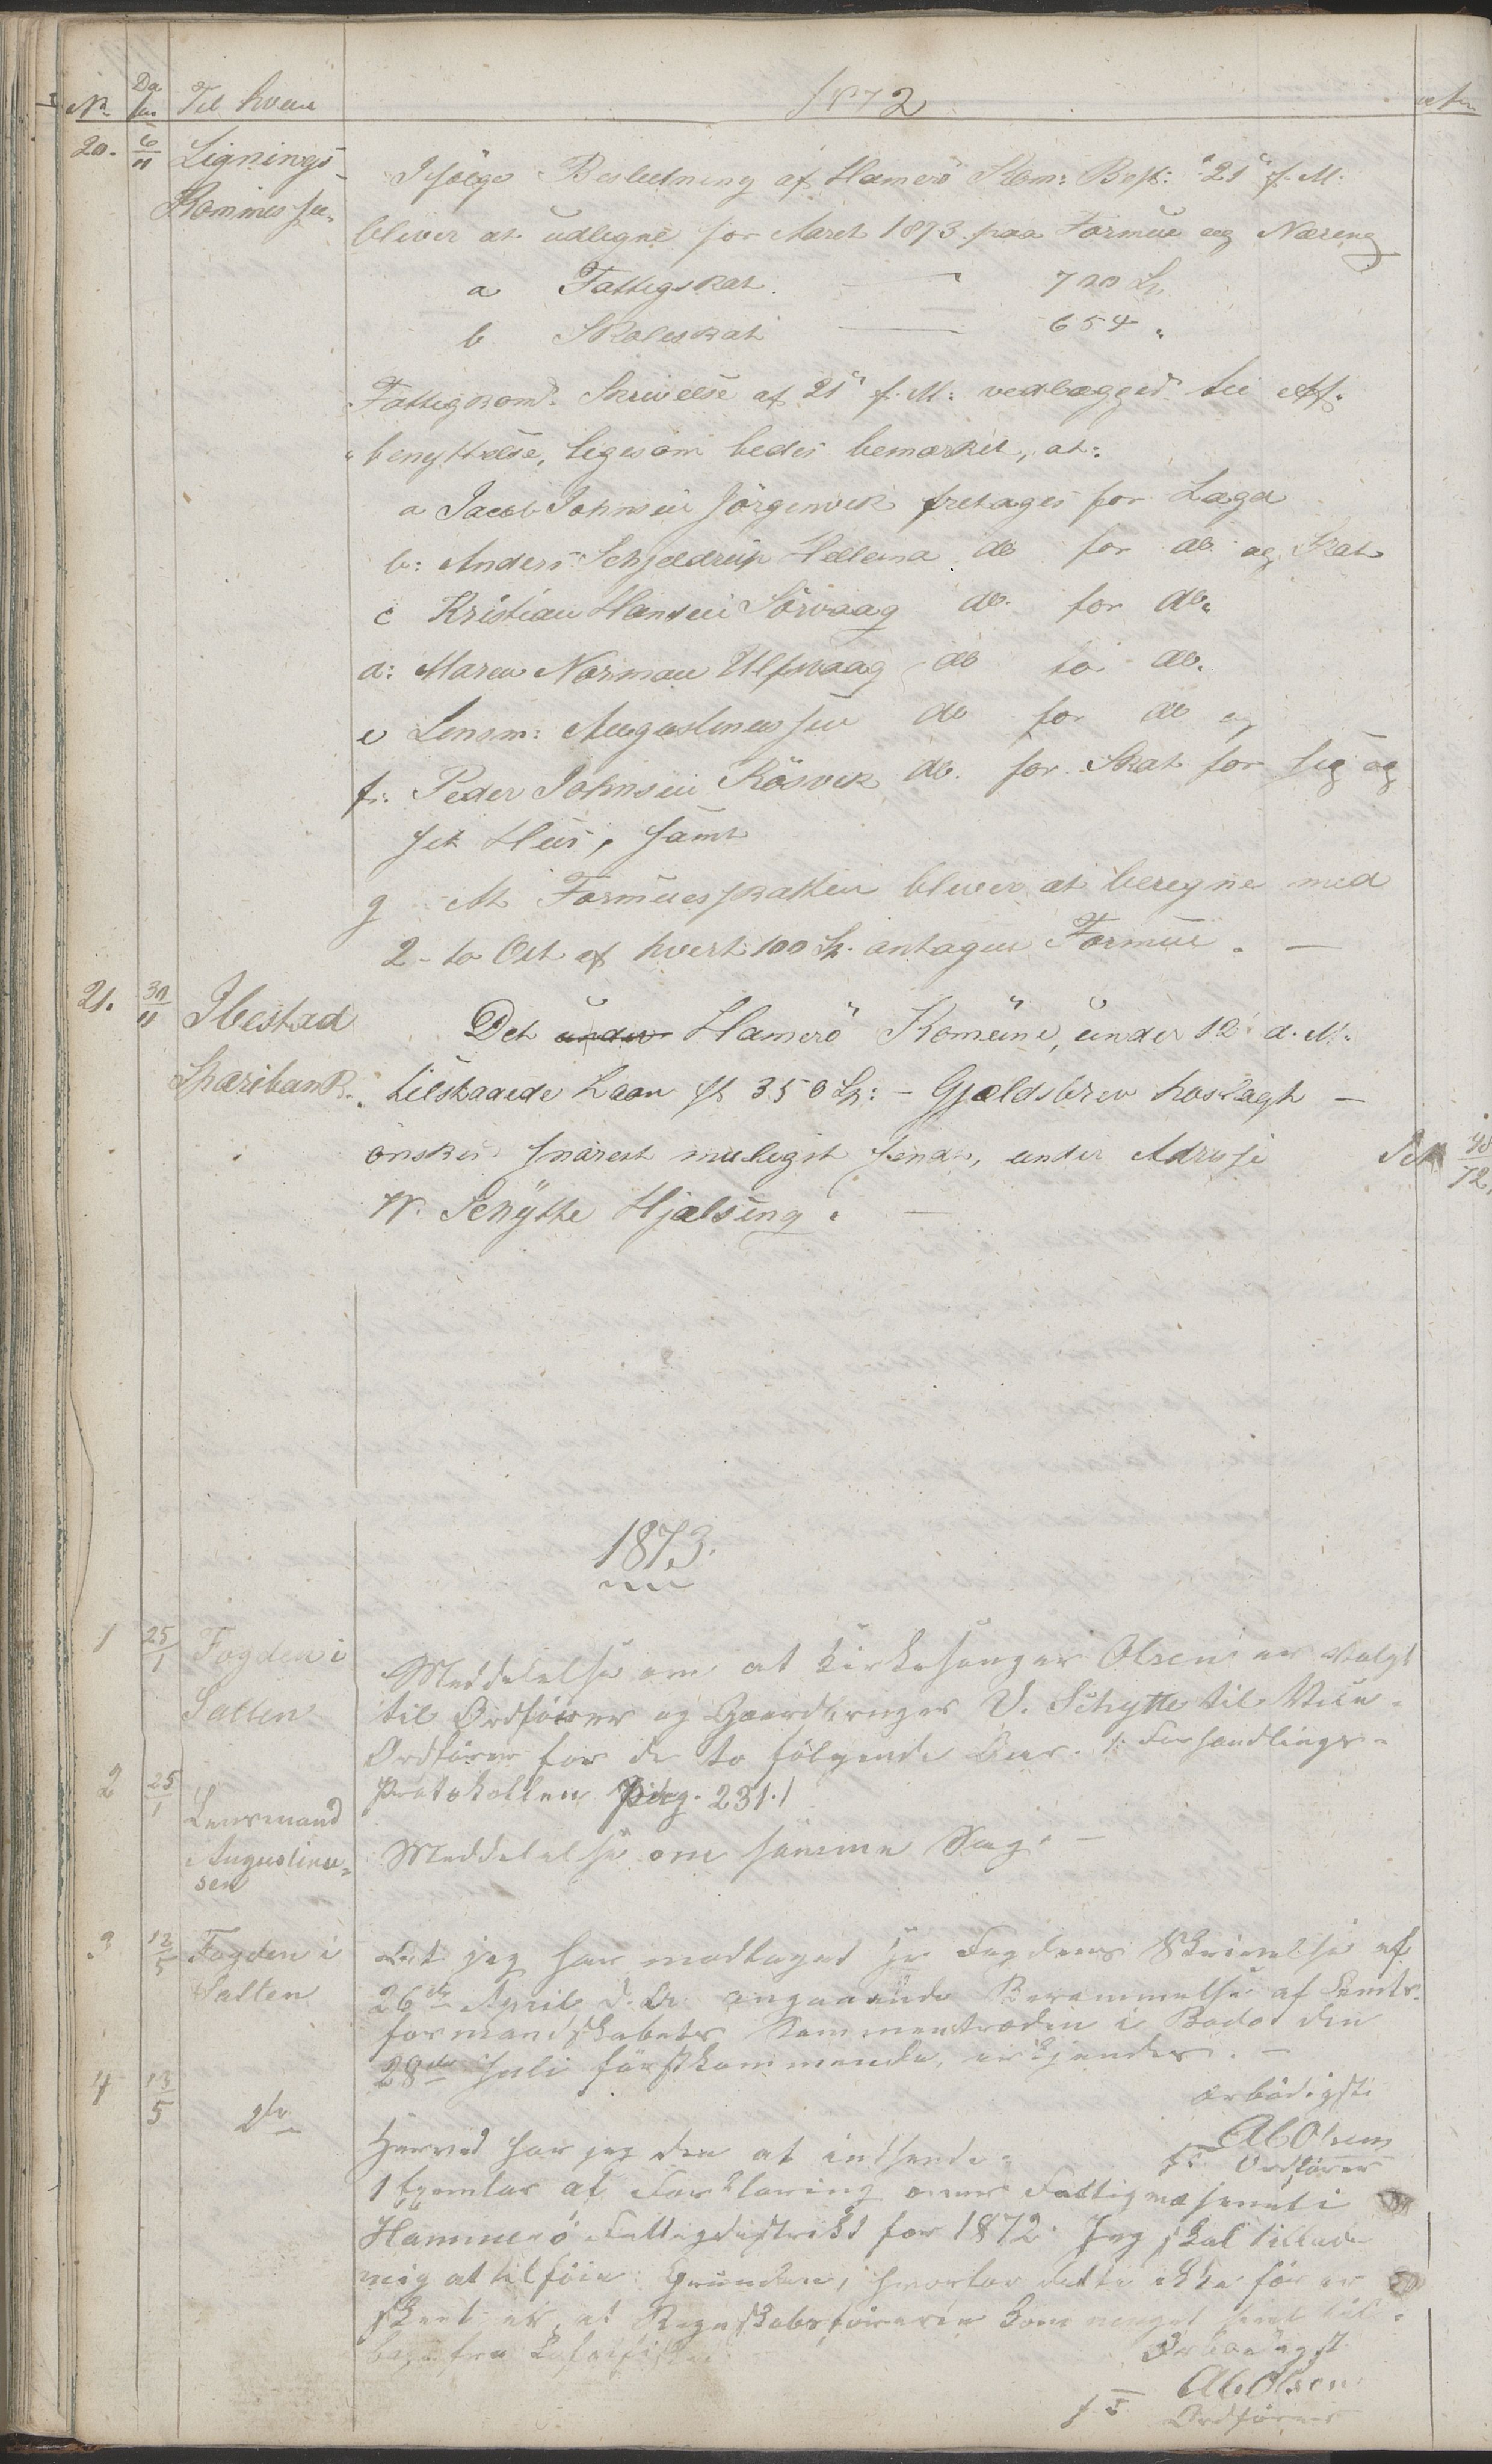 No Da tum Til hvem 1872
20. 6/11 Lignings-
Kommis sie„
Ifölge Beslutning af Hamerö Kom: Best: "21" f. M.
bliver at udligne for Aaret 1873 paa Formue og Næring
a Fattigskat — 720 Sp.
b. Skoleskat — 654 „
Fattigkom: Skrivelse af 21" f. M: vedlægges til Af„
„benyttelse, ligesom bedes bemærket, at:
a Jacob Johnsen Jörgenvik fretages for Lægd
b: Anders Schjeldrup Hellena do for do og Skat
c Kristian Hansen Sörvaag do. for do„
d: Maren Norman Ulfsvaag do for do.
e Lensm: Augustinussen do for do og
f: Peder Johnsen Rösvik do. for Skat for sig og
sit Hus, samt
g At Formuesskatten bliver at beregne med
2 - to Ort af hvert 100 Sp. antagen Formue. —
21. 30/11 Ibestad
Sparebank.
Det under Hamerö Komune, under 12' d. M.
tilstaaede Laan st 350 Sp: - Gjældsbrev hoslagt —
önskes snarest muligst sendt, under Adresse
W. Schytte Hjælsing. —
1873.
1 25/1 Fogden i
Salten
Meddelelse om at Kirkesanger Olsen er valgt
til Ordförer og Gaardbruger V. Schytte til Vice-
Ordförer for de to fölgende Aar. /: Forhandlings-
Protokollen Pag. 231./
2 25/1 Lensmand
Augustinus-
sen
Meddelelse om samme Sag. —
3 12/5 Fogden i
Salten
At jeg har modtaget Hr Fogdens Skrivelse af
26de April d. A. angaaende Berammelse af Amts-
formandskabets Sammentræden i Bodø den
28de Juli förstkommende, erkjendes. —
ærbödigst
A C Olsen
f. t. Ordförer
4 13/5 do
Herved har jeg den at indsende
1 Exemplar af Forklaring over Fattigvæsenet i
Hammerö Fattigdistrikt for 1872. Jeg skal tillade
mig at tilföie: Grunden, hvorfor dette ikke för er
skeet er, at Regnskabsföreren kom meget sent til-
bage fra Lofotfisket.
Ærbödigst
A C Olsen
f. t. Ordförer